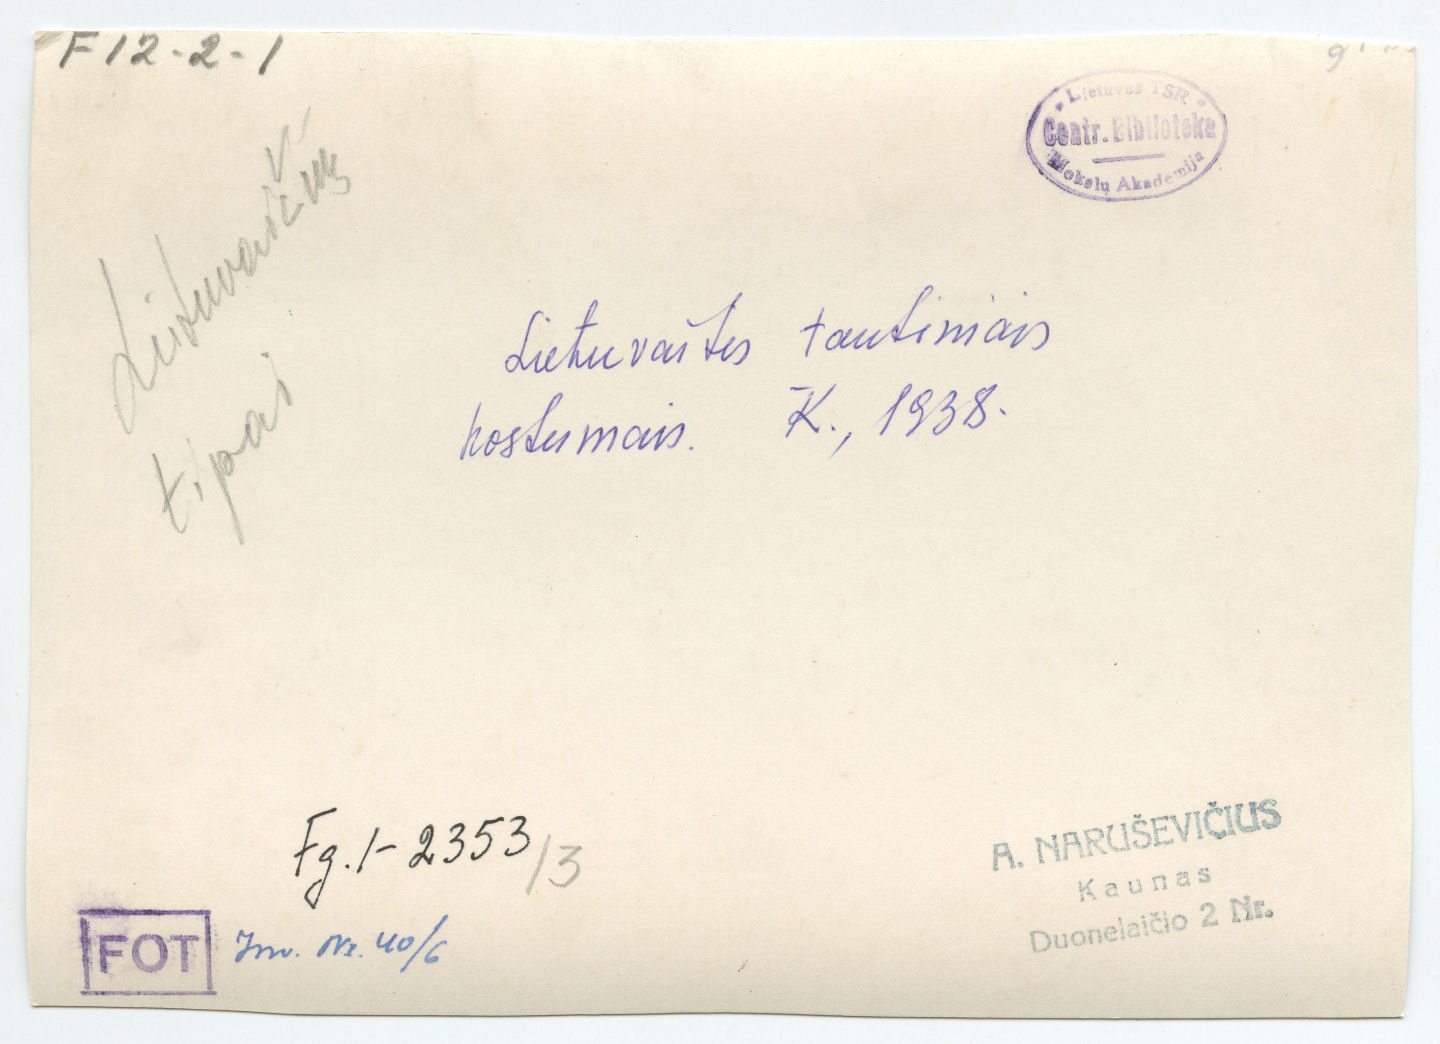 F12-2-1
Lietuvos TSR
Centr. Biblioteka
Mokslų Akademija
tipai
Lietuvaitės tautiniais
kostiumais. K., 1938.
Fg.1-2353/3
FOT
Inv. Nr. 40/6
A. NARUŠEVIČIUS
Kaunas
Duonelaičio 2 Nr.